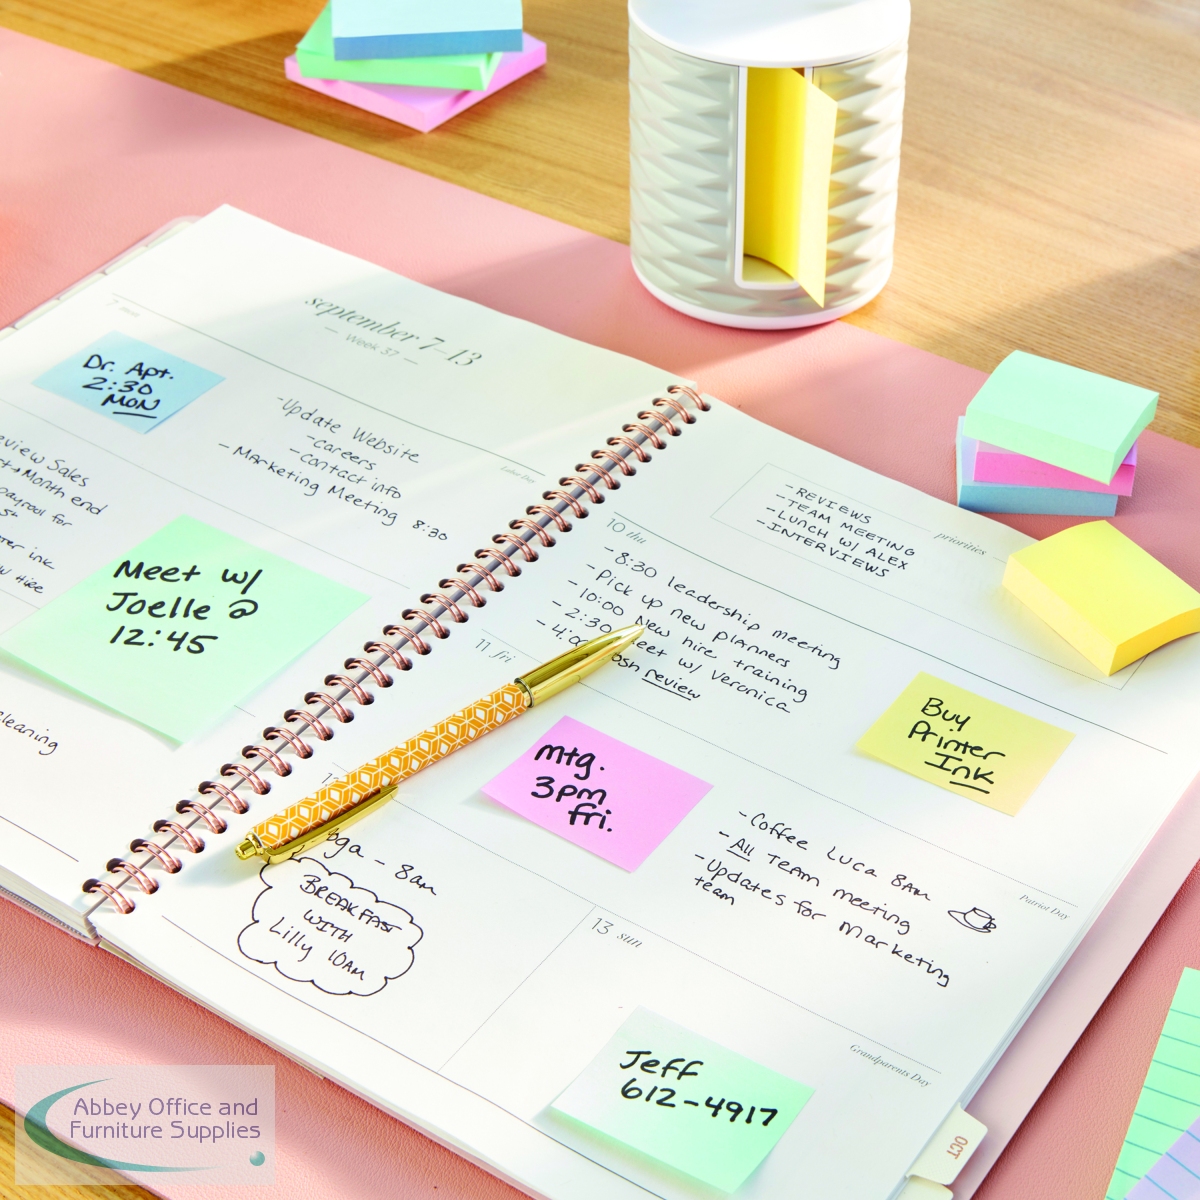 september 7-13
— Week 37 —
7 mon
Dr. Apt.
2:30
MON
-Update Website
-careers
-contact info
-Marketing Meeting 8:30
Labor Day
Sales
Month end
payroll for
ink
Hire
Meet w/
Joelle @
12:45
cleaning
-REVIEWS
-TEAM MEETING
-LUNCH W/ ALEX
-INTERVIEWS
priorities
10 thu
-8:30 leadership meeting
-Pick up new planners
-10:00 New hire training
-2:30 meet w/ Veronica
review
Buy
Printer
Ink
11 fri
mtg.
3pm
fri.
-Coffee Luca 8AM
-All Team meeting
-Updates for Marketing
team
Patriot Day
- 8am
BREAKFAST
WITH
Lilly 10AM
13 sun
Grandparents Day
Jeff
612-4917
OCT
Abbey Office and
Furniture Supplies